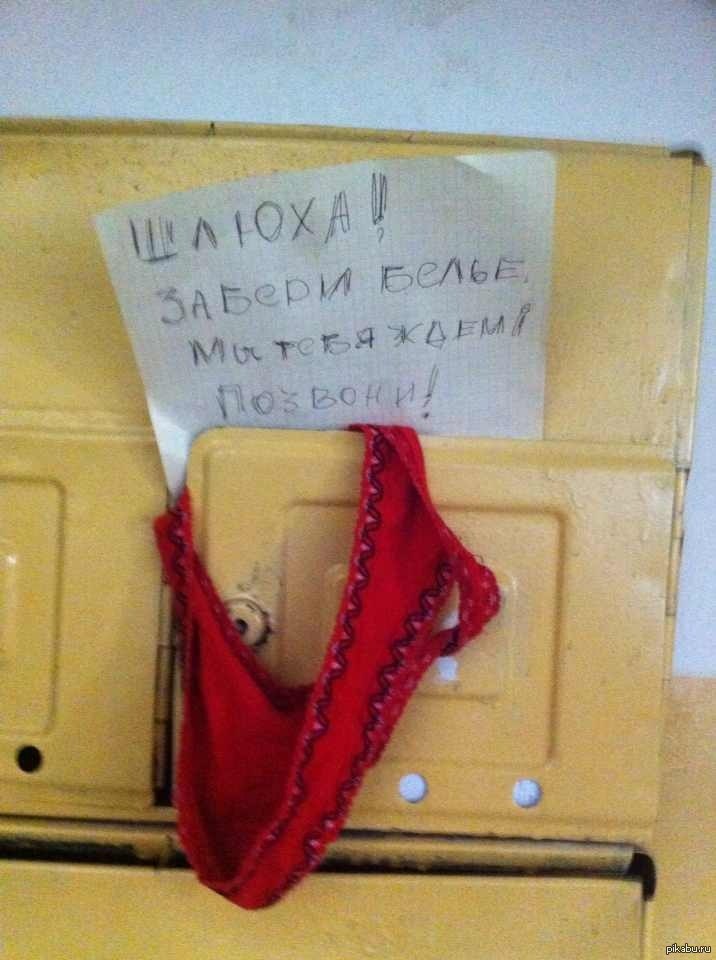 ШЛЮХА!!
ЗАБЕРИ БЕЛЬЕ.
МЫ ТЕБЯ ЖДЕМ!
ПОЗВОНИ!
pikabu.ru